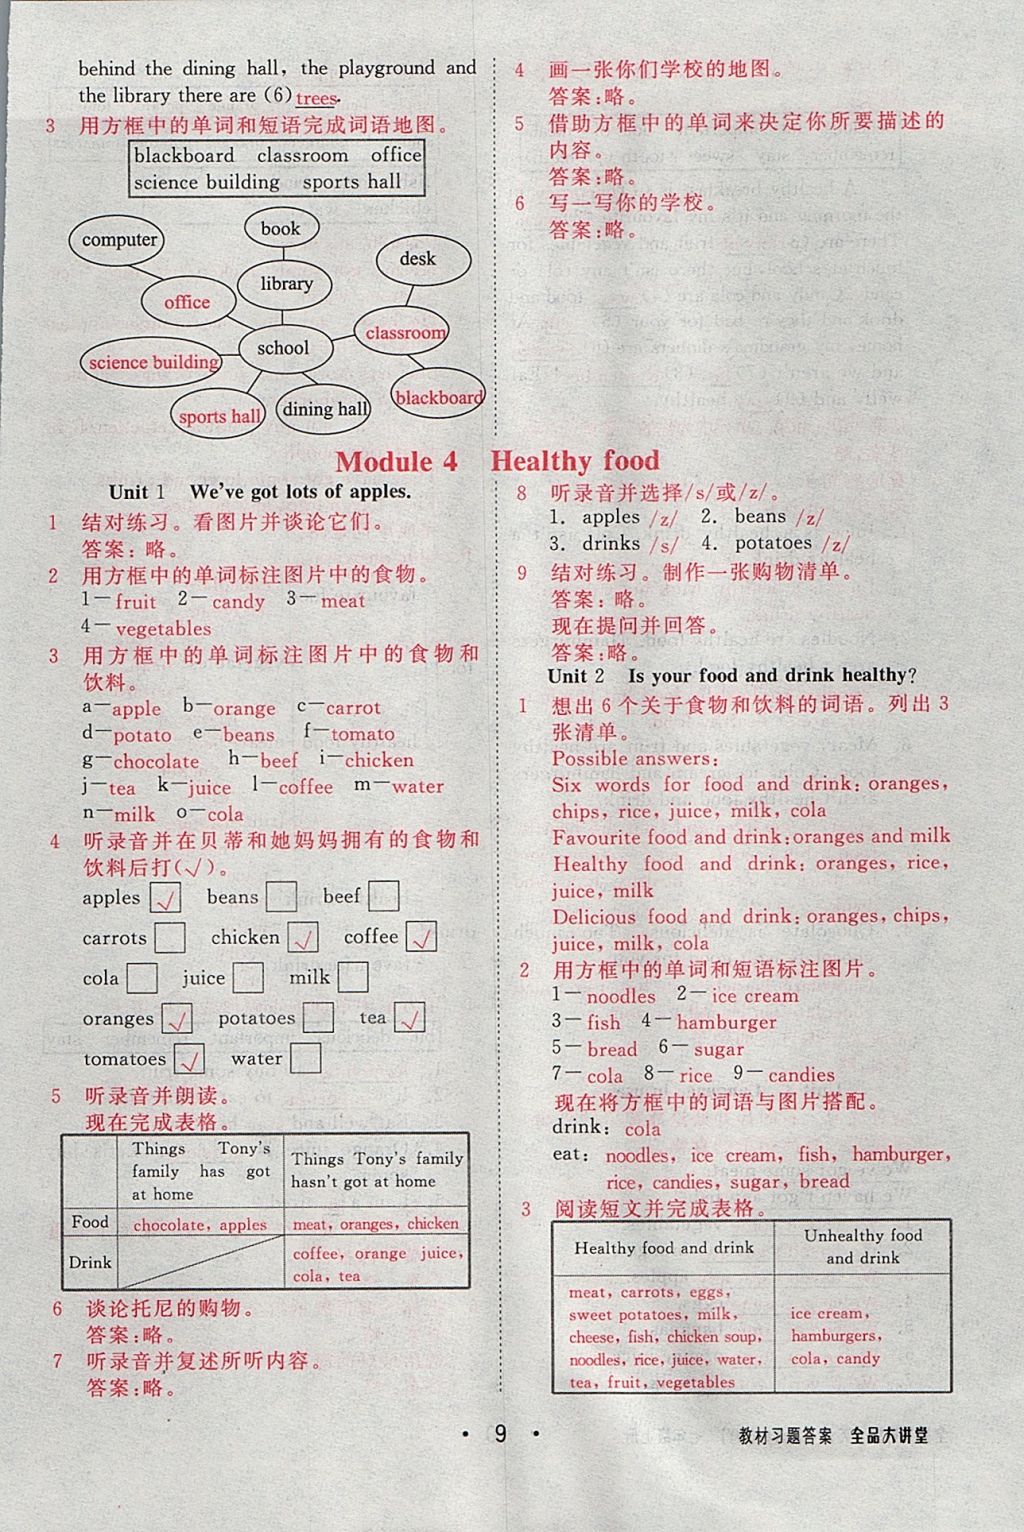 behind the dining hall, the playground and
the library there are (6)trees.
3 用方框中的单词和短语完成词语地图。
blackboard classroom office
science building sports hall
computer
book
desk
office
library
classroom
science building
school
sports hall
dining hall
blackboard
4 画一张你们学校的地图。
答案:略。
5 借助方框中的单词来决定你所要描述的
内容。
答案:略。
6 写一写你的学校。
答案:略。
Module 4 Healthy food
Unit 1 We've got lots of apples.
1 结对练习。看图片并谈论它们。
答案:略。
2 用方框中的单词标注图片中的食物。
1—fruit 2—candy 3—meat
4—vegetables
3 用方框中的单词标注图片中的食物和
饮料。
a—apple b—orange c—carrot
d—potato e—beans f—tomato
g—chocolate h—beef i—chicken
j—tea k—juice l—coffee m—water
n—milk o—cola
4 听录音并在贝蒂和她妈妈拥有的食物和
饮料后打(√)。
apples √ beans beef
carrots chicken √ coffee √
cola juice milk
oranges √ potatoes tea √
tomatoes √ water
5 听录音并朗读。
现在完成表格。
Things Tony's
family has got
at home
Things Tony's family
hasn't got at home
Food chocolate, apples meat, oranges, chicken
Drink coffee, orange juice,
cola, tea
6 谈论托尼的购物。
答案:略。
7 听录音并复述所听内容。
答案:略。
8 听录音并选择/s/或/z/。
1. apples /z/ 2. beans /z/
3. drinks /s/ 4. potatoes /z/
9 结对练习。制作一张购物清单。
答案:略。
现在提问并回答。
答案:略。
Unit 2 Is your food and drink healthy?
1 想出6个关于食物和饮料的词语。列出3
张清单。
Possible answers:
Six words for food and drink: oranges,
chips, rice, juice, milk, cola
Favourite food and drink:oranges and milk
Healthy food and drink: oranges, rice,
juice, milk
Delicious food and drink: oranges, chips,
juice, milk, cola
2 用方框中的单词和短语标注图片。
1—noodles 2—ice cream
3—fish 4—hamburger
5—bread 6—sugar
7—cola 8—rice 9—candies
现在将方框中的词语与图片搭配。
drink: cola
eat: noodles, ice cream, fish, hamburger,
rice, candies, sugar, bread
3 阅读短文并完成表格。
Healthy food and drink
Unhealthy food
and drink
meat, carrots, eggs,
sweet potatoes, milk,
cheese, fish, chicken soup,
noodles, rice, juice, water,
tea, fruit, vegetables
ice cream,
hamburgers,
cola, candy
· 9 ·
教材习题答案 全品大讲堂